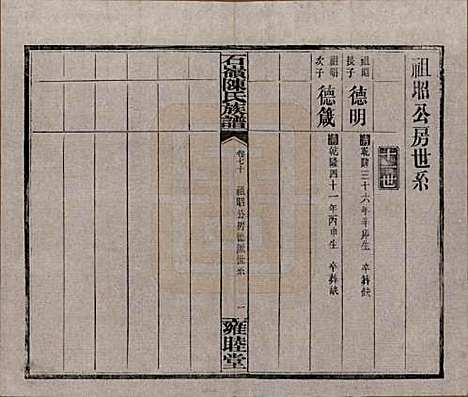 祖炤公房世系
十二世
祖炤長子 德明 清乾隆三十六年辛卯生 卒葬缺
祖炤次子 德箴 清乾隆四十一年丙申生 卒葬缺
石嶺陳氏族譜
卷七十 祖炤公房世系 一
雍睦堂